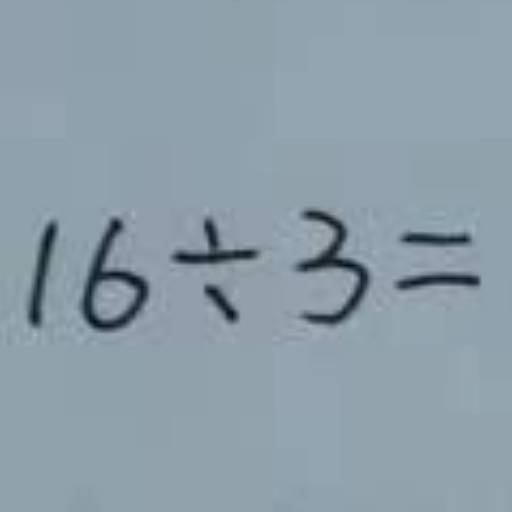 16÷3=